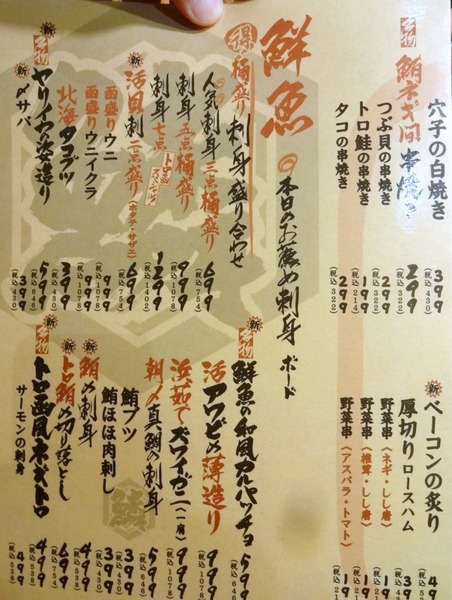 穴子の白焼き 399 (税込430)
名物 鮪ネギ間串焼き 299 (税込322)
つぶ貝の串焼き 299 (税込322)
トロ鮭の串焼き 199 (税込214)
タコの串焼き 299 (税込322)
新 ベーコンの炙り 4
厚切りロースハム 39
野菜串〈ネギ・しし唐〉 19
野菜串〈椎茸・しし唐〉 199
野菜串〈アスパラ・トマト〉 199
鮮魚
◎本日のお薦め刺身 ボード
得 桶盛り 刺身盛り合わせ
人気刺身 三点桶盛り 699 (税込754)
刺身 五点 桶盛り 999 (税込1078)
刺身 七点 1299 (税込1402)
新 活貝刺 二点盛り〈ホタテ・サザエ〉 699 (税込754)
函盛りウニ 999 (税込1078)
函盛りウニイクラ 999 (税込1078)
北海タコブツ 399 (税込430)
新 名物 ヤリイカ姿造り 599 (税込646)
新 〆サバ 399 (税込430)
新 名物 鮮魚の和風カルパッチョ 599 (税込646)
活アワビの薄造り 999 (税込1078)
浜茹でズワイガニ(一肩) 999 (税込1078)
朝〆真鯛の刺身 599 (税込646)
鮪ブツ 399 (税込430)
鮪ほほ肉刺し 399 (税込430)
新 鮪の刺身 499 (税込538)
新 トロ鮪の切り落とし 699 (税込754)
名物 トロ函風ネギトロ 499 (税込538)
サーモンの刺身 499 (税込538)
鱗